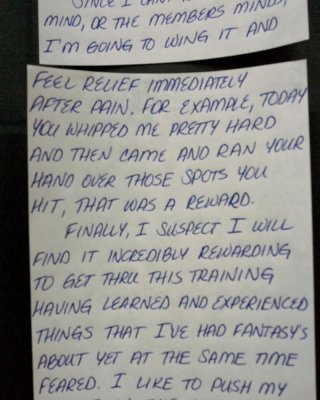 SINCE I CAN'T
MIND, OR THE MEMBERS MINDS,
I'M GOING TO WING IT AND
FEEL RELIEF IMMEDIATELY
AFTER PAIN. FOR EXAMPLE, TODAY
YOU WHIPPED ME PRETTY HARD
AND THEN CAME AND RAN YOUR
HAND OVER THOSE SPOTS YOU
HIT, THAT WAS A REWARD.
FINALLY, I SUSPECT I WILL
FIND IT INCREDIBLY REWARDING
TO GET THRU THIS TRAINING
HAVING LEARNED AND EXPERIENCED
THINGS THAT I'VE HAD FANTASY'S
ABOUT YET AT THE SAME TIME
FEARED. I LIKE TO PUSH MY